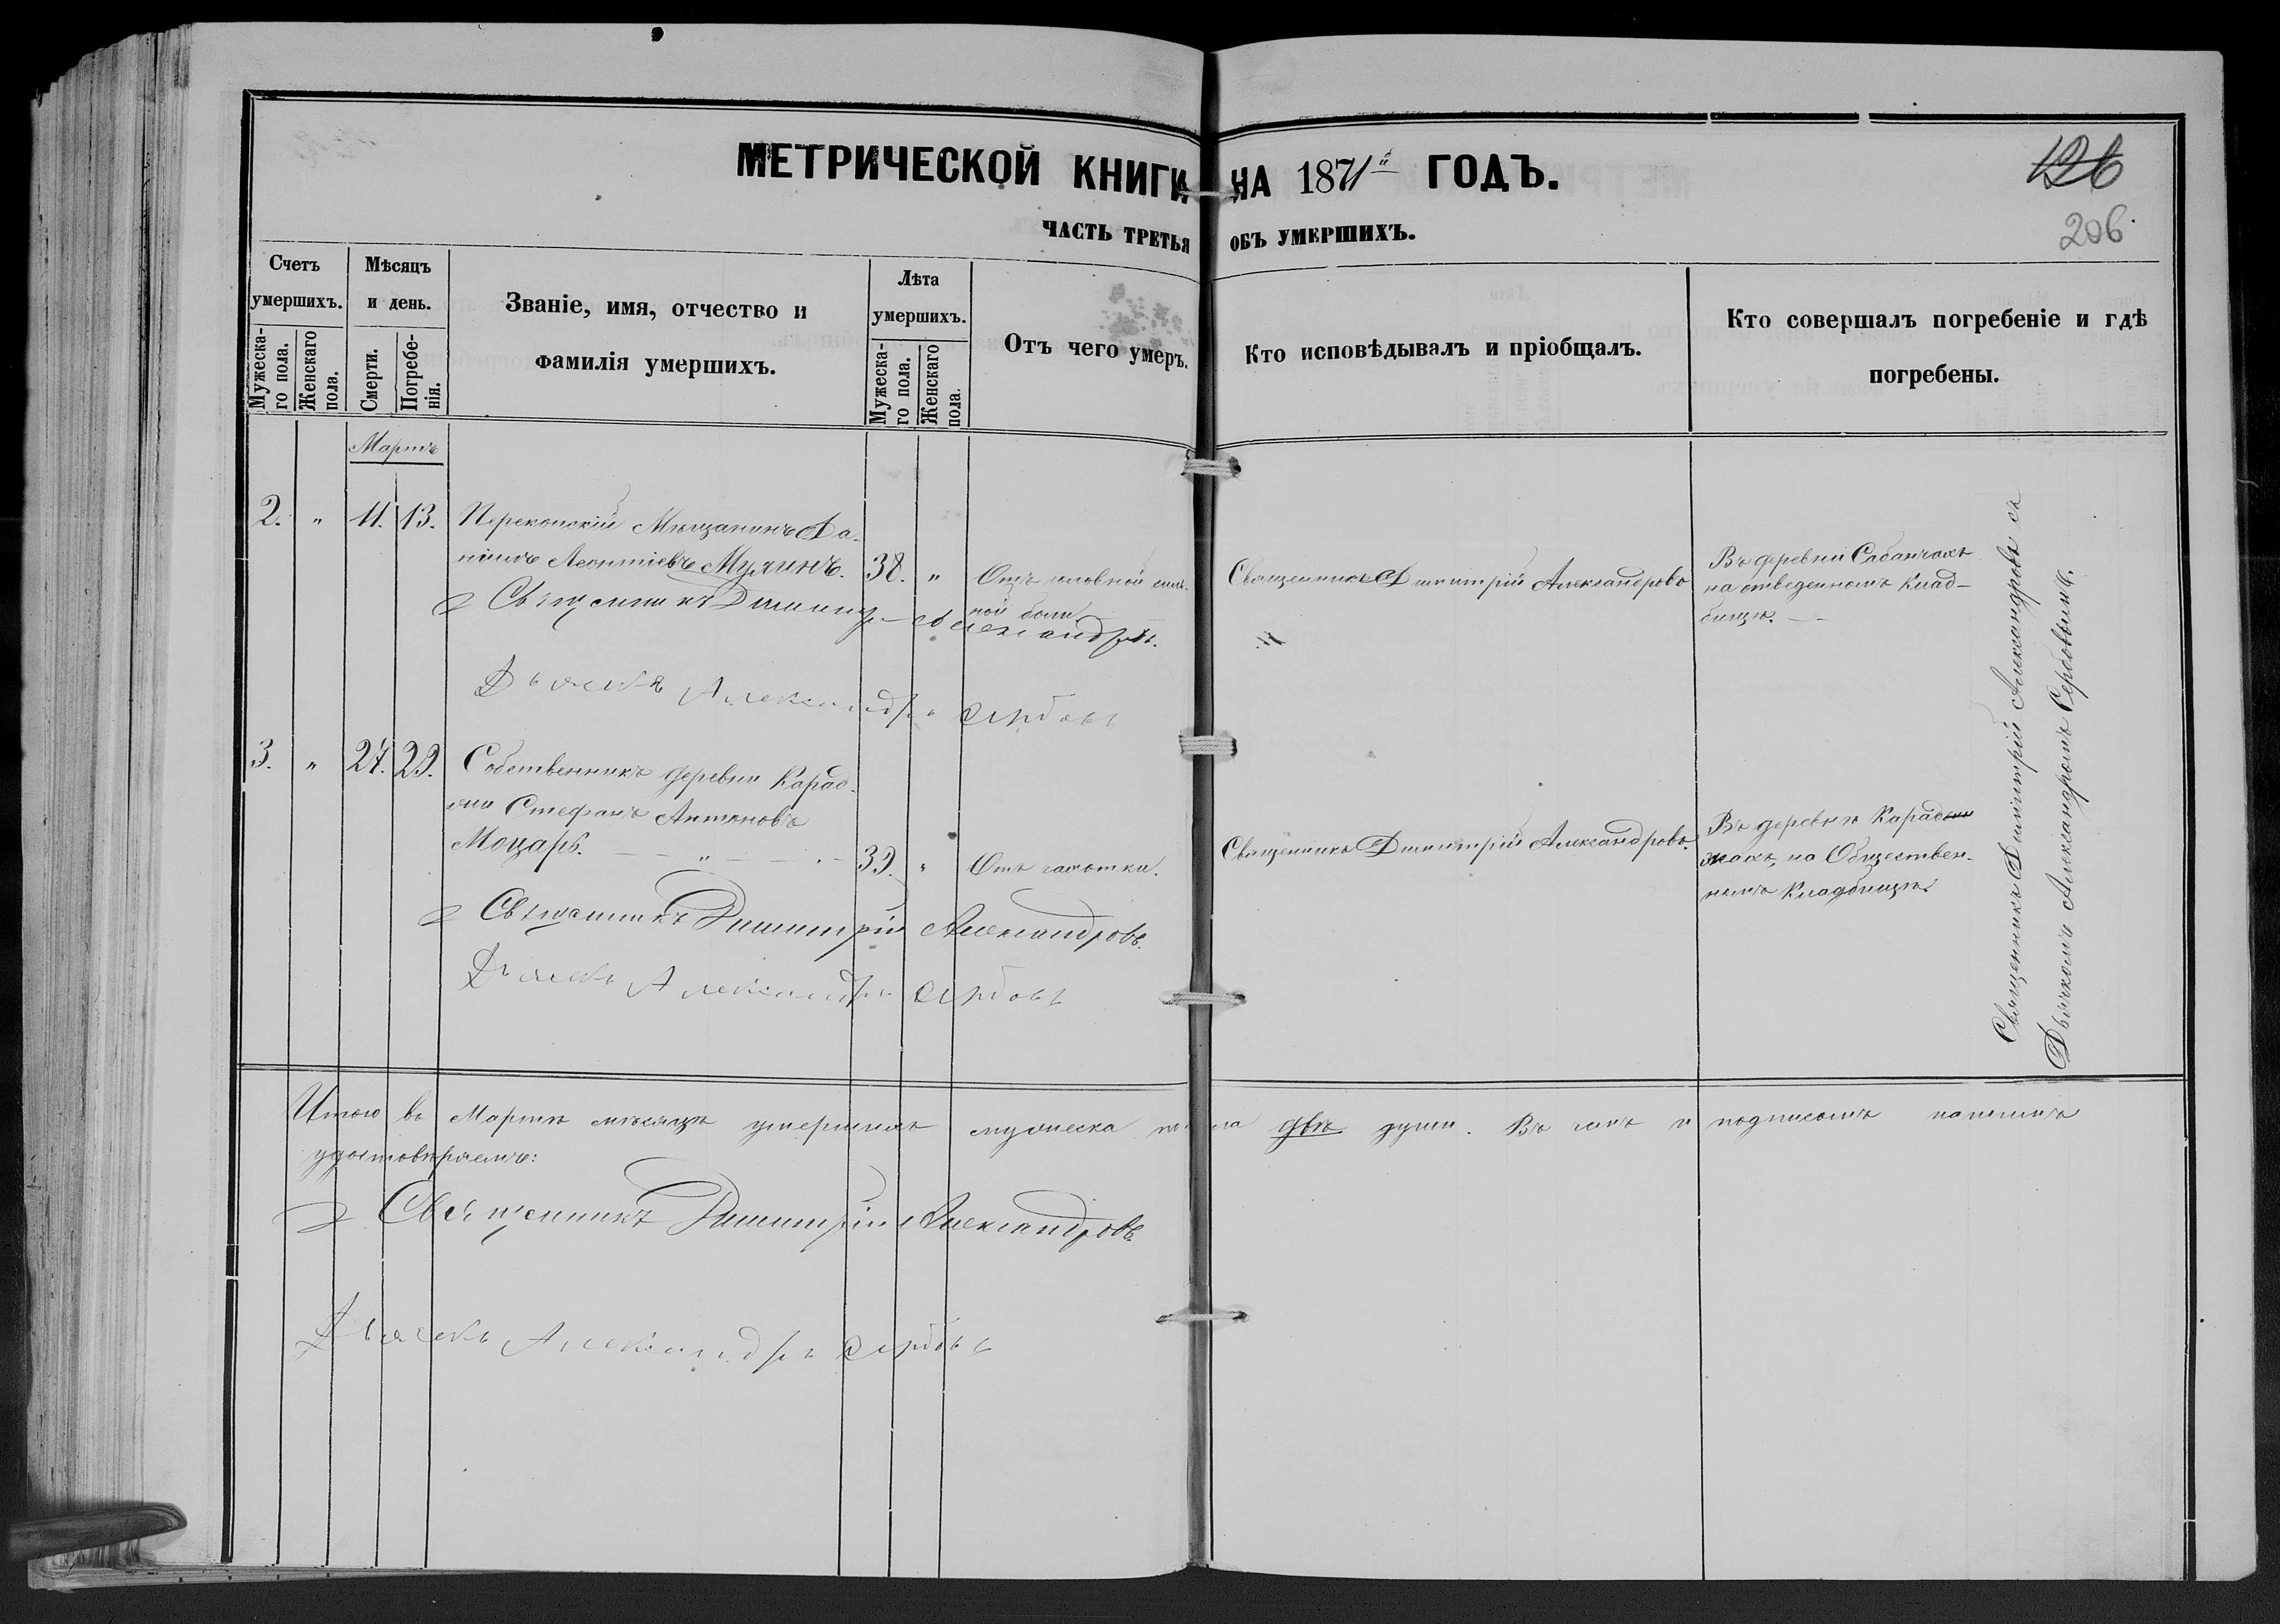 МЕТРИЧЕСКОЙ КНИГИ НА 1871й ГОДЪ.
126
206.
ЧАСТЬ ТРЕТЬЯ ОБЪ УМЕРШИХЪ.
Счетъ умершихъ.
Мужескаго пола.
Женскаго пола.
Мѣсяцъ и день.
Смерти.
Погребенія.
Званіе, имя, отчество и
фамилія умершихъ.
Лѣта умершихъ.
Мужескаго пола.
Женскаго пола.
Отъ чего умеръ.
Кто исповѣдывалъ и пріобщалъ.
Кто совершалъ погребеніе и гдѣ
погребены.
Мартъ
2. " 11. 13. Перекопскій Мѣщанинъ Да-
ніилъ Леонтіевъ 38. " Отъ головной силь-
ной боли
Священникъ Димитрій Александровъ
Въ деревни Сабанчахъ
на отведенномъ Клад-
бищѣ.
Священникъ Димитрій Александровъ.
Дьячекъ Александръ Сербовъ
3. " 27. 29. Собственникъ деревни Карад-
Стефанъ Антоновъ
Моцарь. " 39. " Отъ чахотки.
Священникъ Димитрій Александровъ.
Въ деревнѣ Карад
на Обществен-
номъ Кладбищѣ.
Священникъ Димитрій Александровъ.
Дьячекъ Александръ Сербовъ
Священникъ Димитрій Александровъ съ
Дьячкомъ Александромъ Сербовымъ.
Итого въ Мартѣ мѣсяцѣ умершихъ мужеска пола двѣ души. Въ чемъ и подписомъ нашимъ
удостовѣряемъ:
Священникъ Димитрій Александровъ
Дьячекъ Александръ Сербовъ